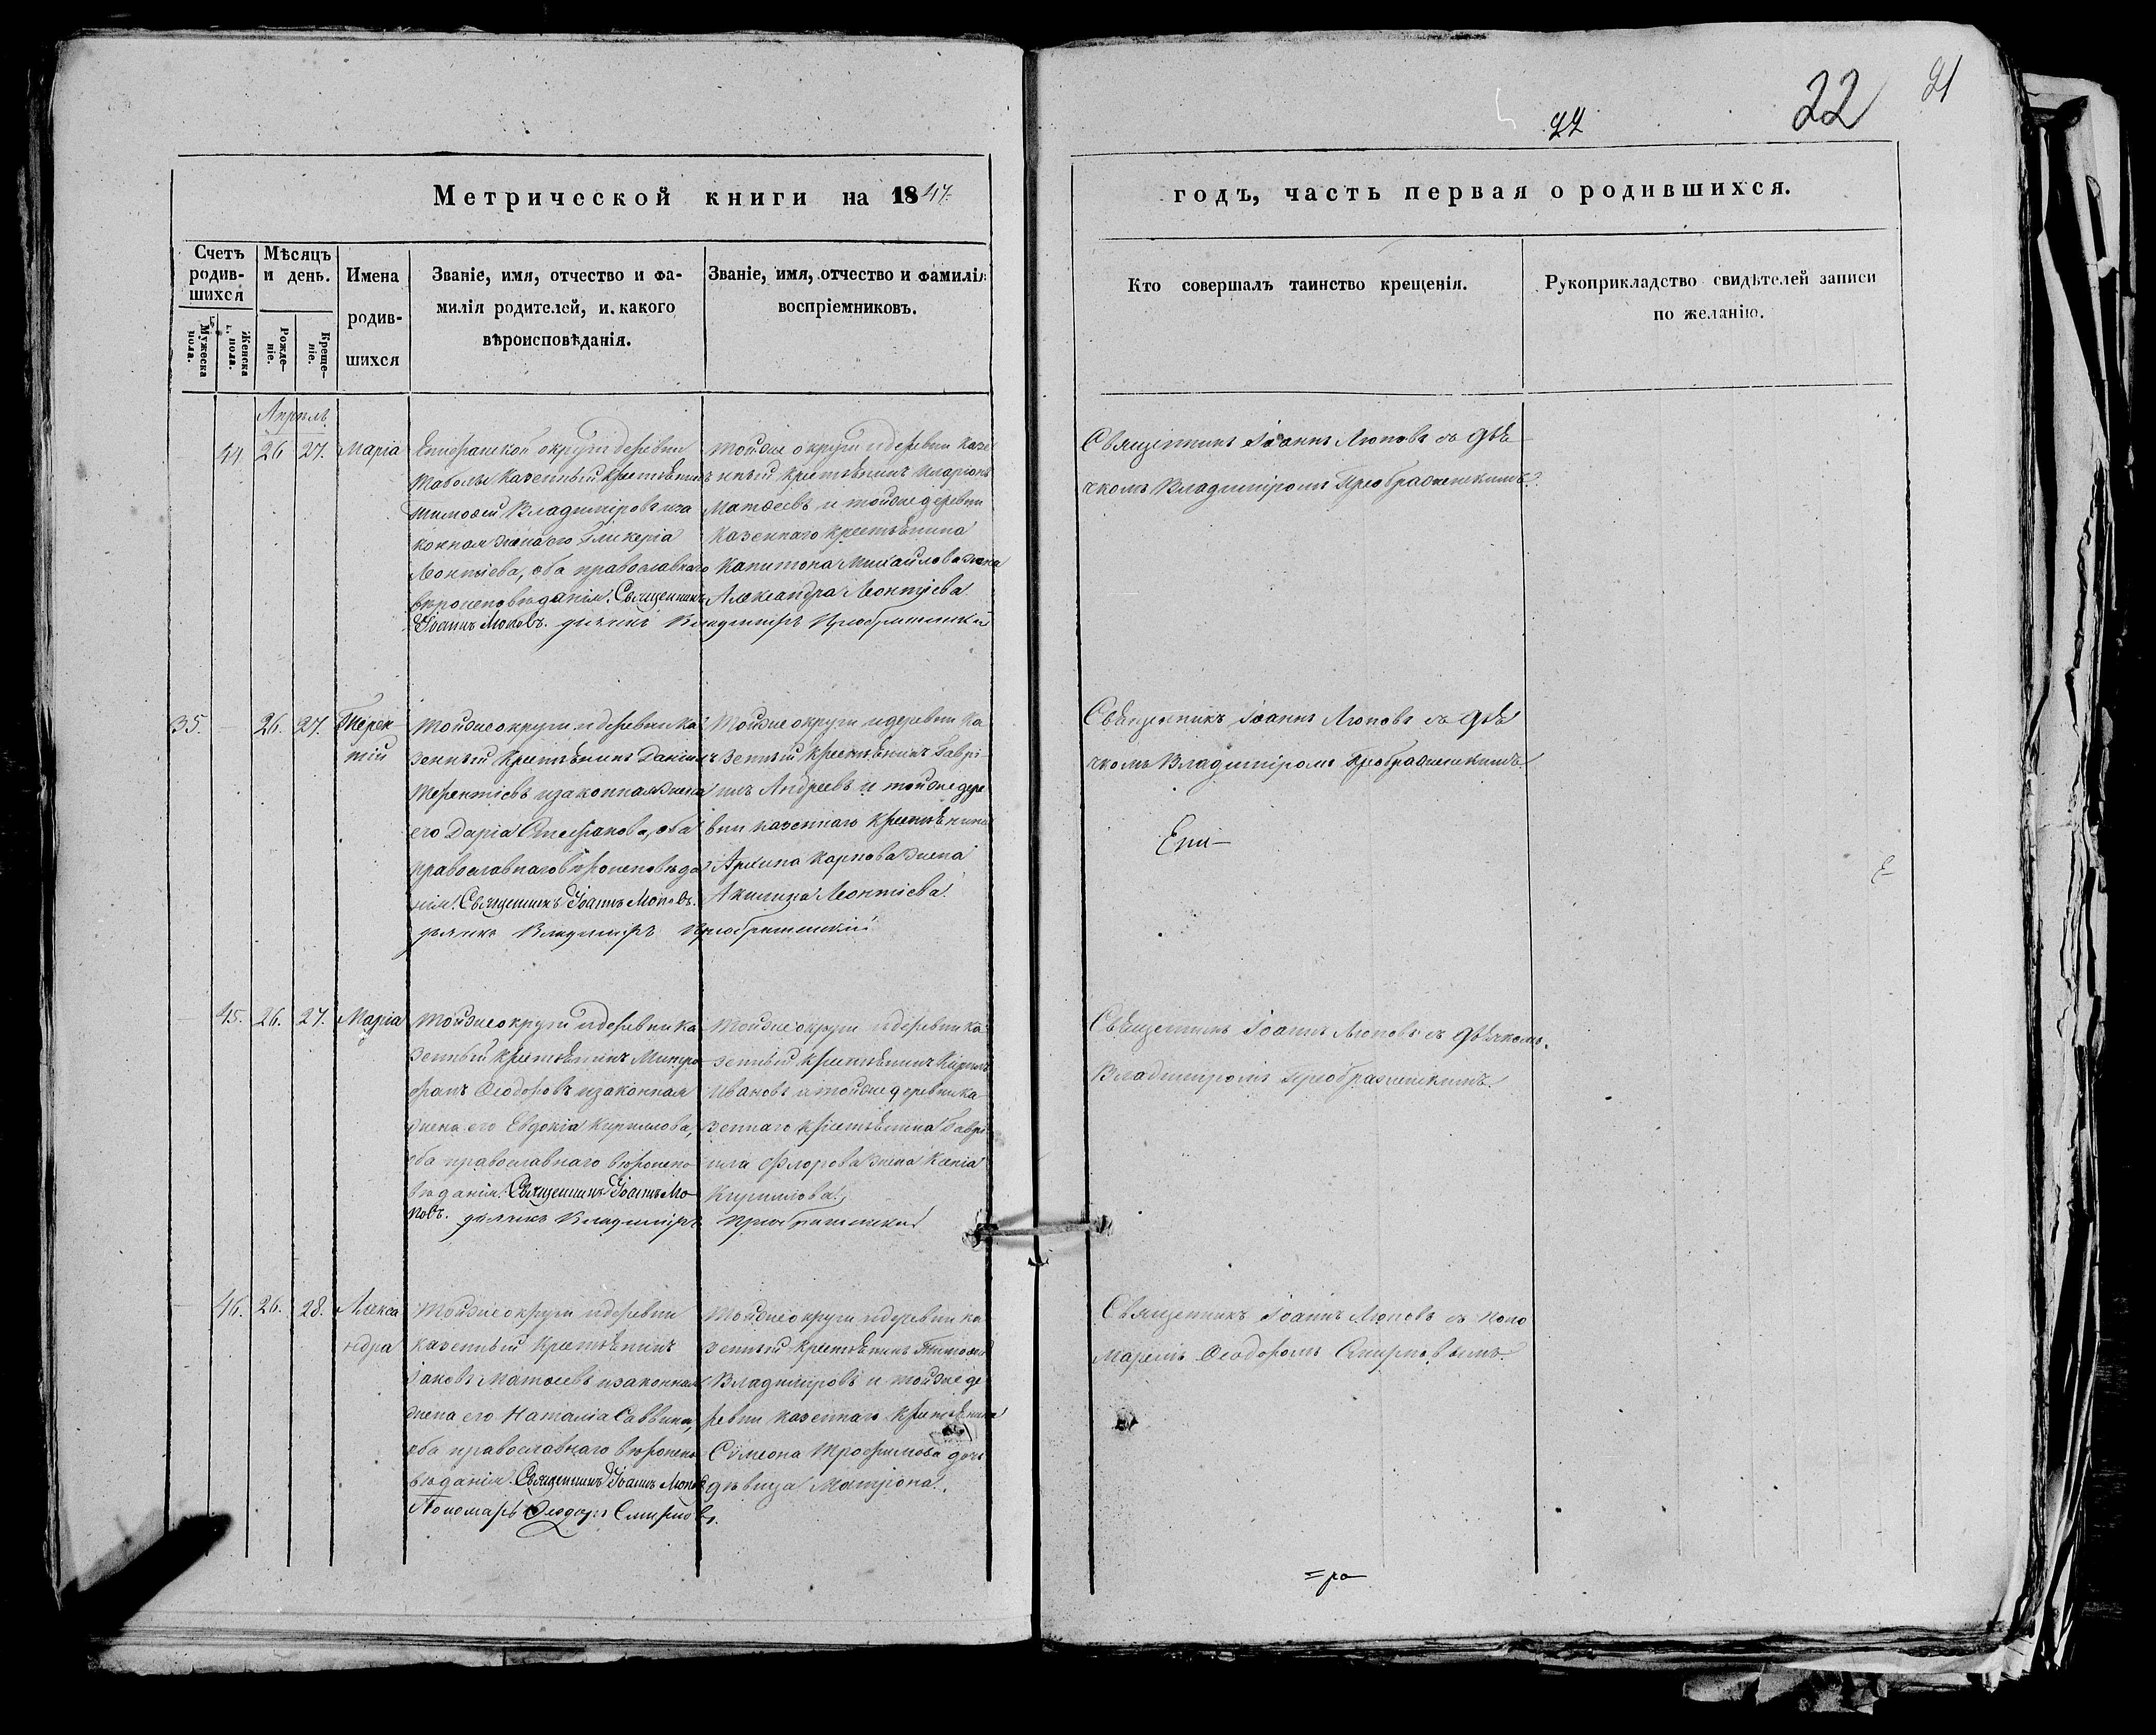 22
21
22
Метрической книги на 1847.
годъ, часть первая о родившихся.
Счетъ родив-шихся
Мужеска пола.
Женска пола.
Мѣсяцъ и день.
Рожде-ніе.
Креще-ніе.
Имена родив-шихся
Званіе, имя, отчество и фа-
милія родителей, и какого
вѣроисповѣданія.
Званіе, имя, отчество и фамилія
воспріемниковъ.
Кто совершалъ таинство крещенія.
Рукоприкладство свидѣтелей записи
по желанію.
Апрѣль
44. 26 27. Марія
Епифанской округи деревни
Таболы казенный крестьянинъ
Тимоѳей Владиміровъ и за
конная жена его Гликерія
Леонтіева, оба православнаго
вѣроисповѣданія. Священникъ
Іоаннъ Поповъ. дьячекъ Владиміръ Преображенскій
Тойже округи и деревни казе
нный крестьянинъ Иларіонъ
Матѳеевъ и тойже деревни
казеннаго крестьянина
Капитона Михайлова жена
Александра Леонтіева
Священникъ Іоаннъ Поповъ съ дья
чкомъ Владиміромъ Преображенскимъ.
35. – 26. 27. Терен-
тій
Тойже округи и деревни ка
зенный крестьянинъ Даніилъ
Терентіевъ и законная жена
его Дарія Стефанова, оба
православнаго вѣроисповѣда
нія. Священникъ Іоаннъ Поповъ.
дьячекъ Владиміръ Преображенскій
Тойже округи и деревни ка
зенный крестьянинъ Гаврі
илъ Андреевъ и тойже дере
вни казеннаго крестьянина
Архипа Карпова жена
Акилина Леонтіева.
Священникъ Іоаннъ Поповъ съ дья
чкомъ Владиміромъ Преображенскимъ.
Епи-
– 45. 26. 27. Марія
Тойже округи и деревни ка
зенный крестьянинъ Митро
фанъ Ѳеодоровъ и законная
жена его Евдокія Кириллова,
оба православнаго вѣроиспо
вѣданія. Священникъ Іоаннъ По-
повъ. дьячекъ Владиміръ Преображенскій
Тойже округи и деревни ка
зенный крестьянинъ Кириллъ
Ивановъ и тойже деревни ка
зеннаго крестьянина Гаврі
ила Флорова жена Ксенія
Кириллова.
Священникъ Іоаннъ Поповъ съ дьячкомъ
Владиміромъ Преображенскимъ.
– 46. 26. 28. Алекса
ндра
Тойже округи и деревни
казенный крестьянинъ
Іаковъ Матѳеевъ и законная
жена его Наталія Саввина,
оба православнаго вѣроиспо
вѣданія. Священникъ Іоаннъ Поповъ
Пономарь Ѳеодоръ Смирновъ.
Тойже округи и деревни ка
зенный крестьянинъ Тимоѳей
Владиміровъ и тойже де
ревни казеннаго крестьянина
Сѵмеона Трофимова дочь
дѣвица Матрона.
Священникъ Іоаннъ Поповъ съ поно
маремъ Ѳеодоромъ Смирновымъ.
=ра